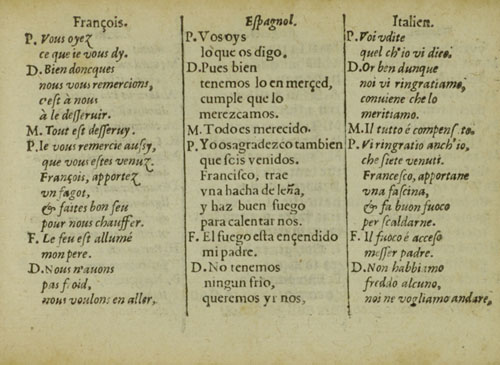 François.
P. Vous oyez
ce que ie vous dy.
D. Bien doncques
nous vous remercions,
c'est à nous
à le desseruir.
M. Tout est desseruy.
P. Ie vous remercie aussy,
que vous estes venuz.
François, apportez
vn fagot,
& faites bon feu
pour nous chauffer.
F. Le feu est allumé
mon pere.
D. Nous n'auons
pas froid,
nous voulons en aller,
Espagnol.
P. Vos oys
lo que os digo.
D. Pues bien
tenemos lo en merçed,
cumple que lo
merezcamos.
M. Todo es merecido.
P. Yo os agradezco tambien
que seis venidos.
Francisco, trae
vna hacha de leña,
y haz buen fuego
para calentar nos.
F. El fuego esta ençendido
mi padre.
D. No tenemos
ningun frio,
queremos yr nos,
Italien.
P. Voi vdite
quel ch'io vi dico.
D. Or ben dunque
noi vi ringratiamo,
conuiene che lo
meritiamo.
M. Il tutto é compensato.
P. Vi ringratio anch'io,
che siete venuti.
Francesco, apportane
vna fascina,
& fa buon fuoco
per scaldarne.
F. Il fuoco é acceso
messer padre.
D. Non habbiamo
freddo alcuno,
noi ne vogliamo andare,